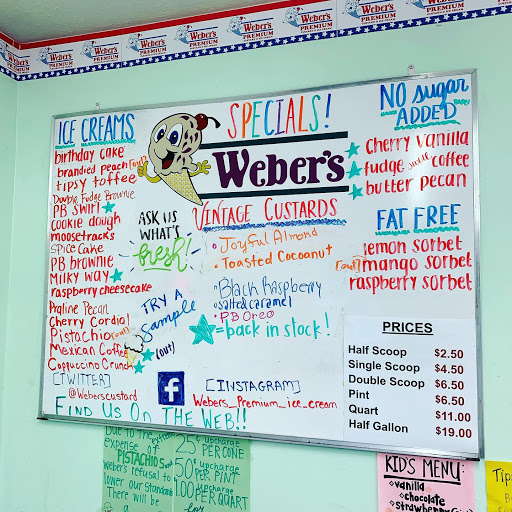 Weber's PREMIUM
Weber's PREMIUM
Weber's PREMIUM
Weber's PREMIUM
Weber's PREMIUM
Weber's PREMIUM
SPECIALS!
Weber's
ICE CREAMS
birthday cake
brandied peach (out)
tipsy toffee
Double Fudge Brownie
PB SWIRL
cookie dough
moosetracks
SPICE CAKE
PB BROWNIE
MILKY WAY
raspberry cheesecake
Praline Pecan
Cherry Cordial
Pistachio (out)
Mexican Coffee
Cappuccino Crunch (out)
[TWITTER]
@Weberscustard
FIND US ON THE WEB!!
ASK US
WHAT'S
fresh!
TRY A
Sample
VINTAGE CUSTARDS
Joyful Almond
Toasted Cocoanut
Black Raspberry
salted caramel
PB Oreo
= back in stock!
[INSTAGRAM]
Webers_Premium_ice_cream
NO sugar
ADDED
cherry vanilla
fudge coffee
butter pecan
FAT FREE
lemon sorbet
[out] mango sorbet
raspberry sorbet
PRICES
Half Scoop $2.50
Single Scoop $4.50
Double Scoop $6.50
Pint $6.50
Quart $11.00
Half Gallon $19.00
Due to the extreme
expense of
PISTACHIOS and
Weber's refusal to
lower our standards
There will be
a
25¢ upcharge
PER CONE
50¢ upcharge
PER PINT
100 upcharge
PER QUART
KID'S MENU:
vanilla
chocolate
strawberry
Tip